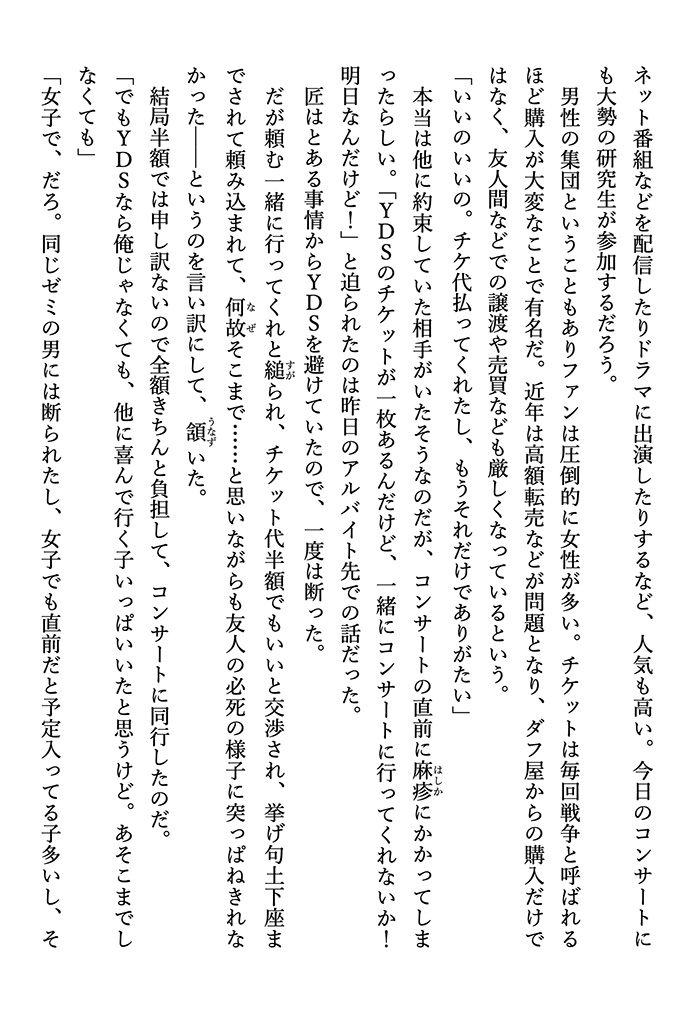 ネット番組などを配信したりドラマに出演したりするなど、人気も高い。今日のコンサートに
も大勢の研究生が参加するだろう。
　男性の集団ということもありファンは圧倒的に女性が多い。チケットは毎回戦争と呼ばれる
ほど購入が大変なことで有名だ。近年は高額転売などが問題となり、ダフ屋からの購入だけで
はなく、友人間などでの譲渡や売買なども厳しくなっているという。
「いいのいいの。チケ代払ってくれたし、もうそれだけでありがたい」
　本当は他に約束していた相手がいたそうなのだが、コンサートの直前に麻疹はしかにかかってしま
ったらしい。「YDSのチケットが一枚あるんだけど、一緒にコンサートに行ってくれないか！
明日なんだけど！」と迫られたのは昨日のアルバイト先での話だった。
　匠はとある事情からYDSを避けていたので、一度は断った。
　だが頼む一緒に行ってくれと縋すがられ、チケット代半額でもいいと交渉され、挙げ句土下座ま
でされて頼み込まれて、何故なぜそこまで……と思いながらも友人の必死の様子に突っぱねきれな
かった――というのを言い訳にして、頷うなずいた。
　結局半額では申し訳ないので全額きちんと負担して、コンサートに同行したのだ。
「でもYDSなら俺じゃなくても、他に喜んで行く子いっぱいいたと思うけど。あそこまでし
なくても」
「女子で、だろ。同じゼミの男には断られたし、女子でも直前だと予定入ってる子多いし、そ